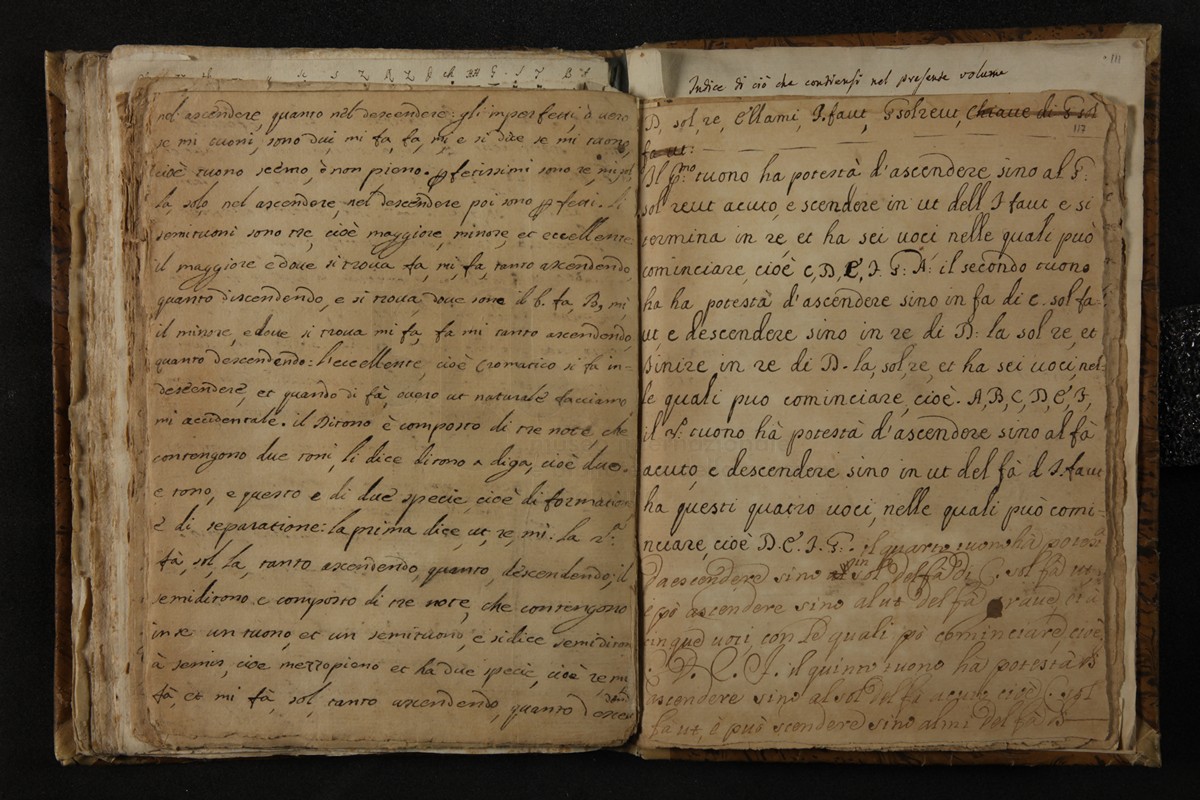 nel ascendere, quanto nel descendere: gli imperfetti, ò uero
se mi tuoni, sono dui, mi fa, fa, mi, e si dice se mi tuono,
cioè tuono scemo, ò non pieno. ꝑfetissimi sono re, mi, sol,
la, solo nel ascendere, nel descendere poi sono ꝑfetti. Li
semituoni sono tre, cioè maggiore, minore, et eccellente:
il maggiore è doue si troua fa, mi, fa, tanto ascendendo,
quanto discendendo, e si troua, doue sono il b. fa, B, mi,
il minore, e doue si troua mi fa, fa mi tanto ascendendo,
quanto descendendo: l'eccellente, cioè Cromatico si fa in-
descendere, et quando di fà, ouero ut naturale facciamo,
mi accidentale. il Ditono è composto di tre note, che
contengono due toni, si dice ditono a diga, cioè due.
e tono, e questo e di due specie, cioè di formatione
e di separatione: la prima dice, ut, re, mi. la 2.ª
fà, sol, la, tanto ascendendo, quanto, descendendo; il
semiditono e composto di tre note, che contengono
in se un tuono, et un semituono, e si dice semiditon
à semis, cioe mezzopieno et ha due specie, cioè re mi
fà, et mi fà, sol, tanto ascendendo, quanto descen
Indice di ciò che contiensi nel presente volume
111
D, sol, re, Ellami, F.faut, Gsolreut, Chiaue di F sol
117
fa ut:
Il P.mo tuono ha potestà d'ascendere sino al G:
sol reut acuto, e scendere in ut dell F faut e si
termina in re et ha sei uoci nelle quali può
cominciare, cioè C, D, E, F. G: A: il secondo tuono
ha ha potestà d'ascendere sino in fa di C. sol fa-
ut e descendere sino in re di D: la sol re, et
finire in re di D. la, sol, re, et ha sei uoci, nel-
le quali puo cominciare, cioè. A, B, C, D, E, F,
il tuono hà potestà d'ascendere sino al fà
acuto, e descendere sino in ut del fà d F.faut
ha questi quatro uoci, nelle quali può comi-
nciare, cioè D. E. F. G. il quarto tuono hà potes
da escendere sino sol del fà di C. sol fà ut
e pò ascendere sino al ut del fà graue, et à
cinque uoci, con le quali pò cominciare, cioè,
D. E. F. il quinto tuono hà potestà
ascendere sino al sol del fà acuto cioè C. sol
fa ut, è può scendere sino al mi del fà